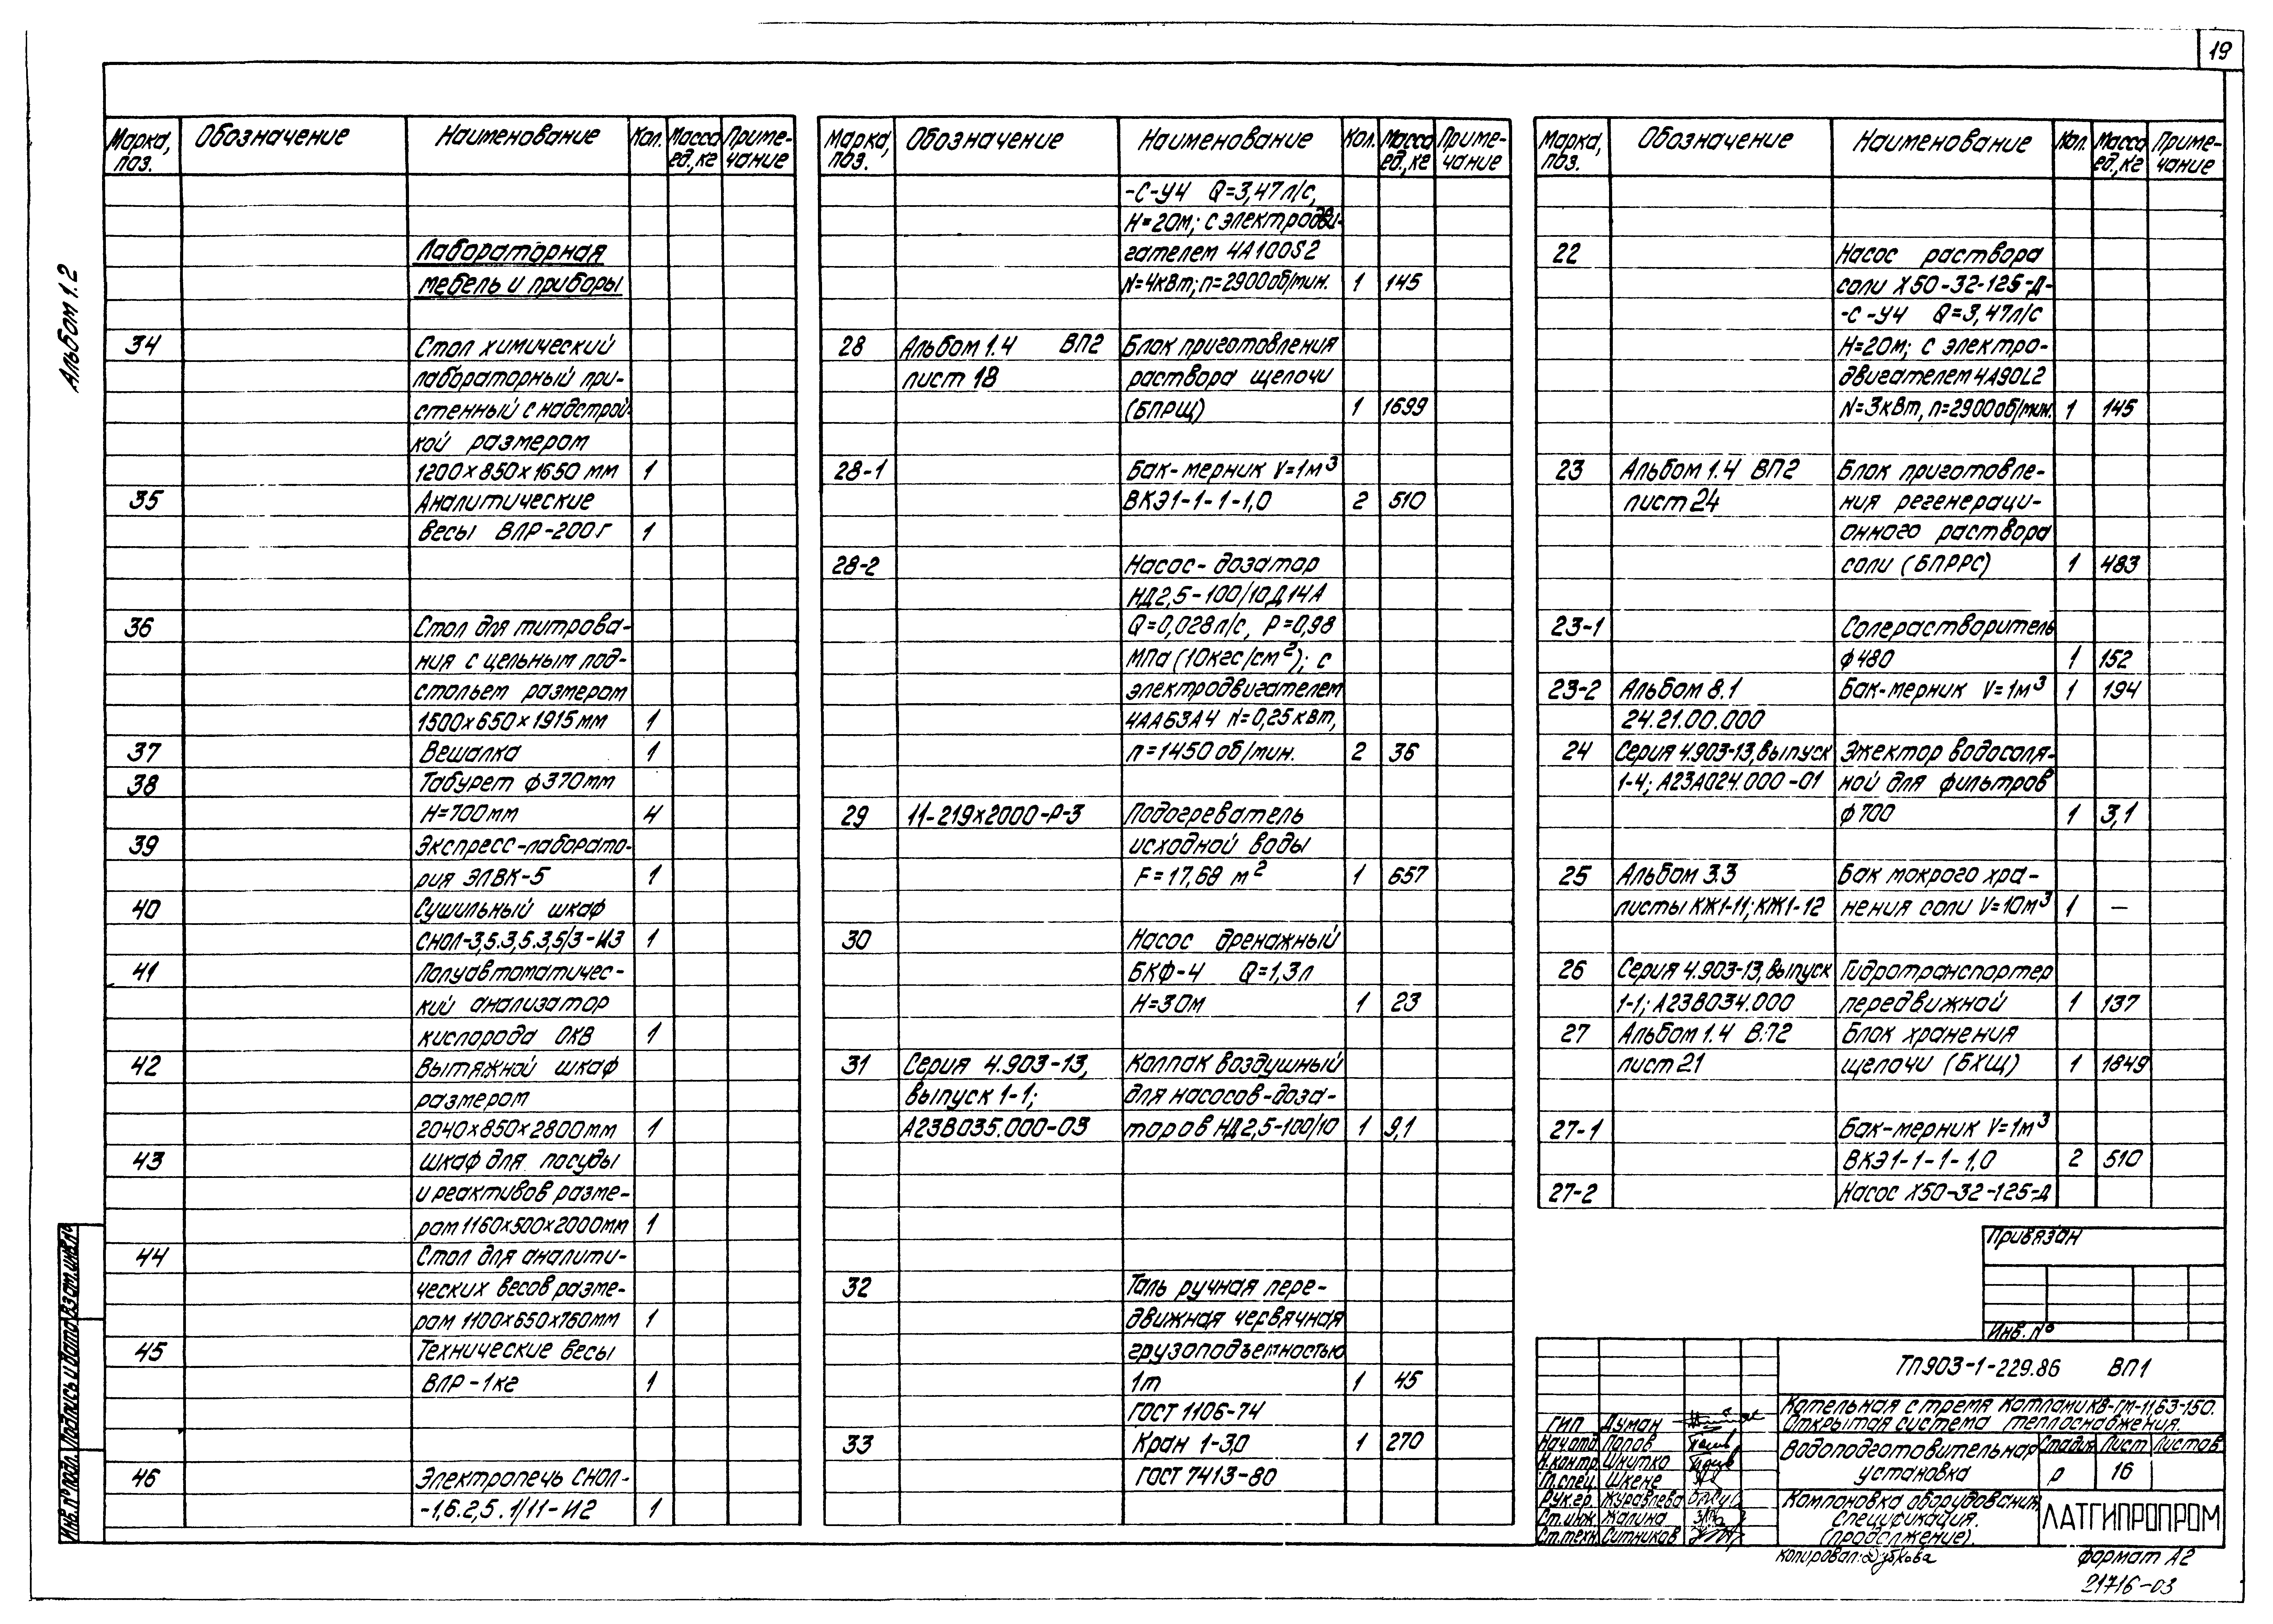 19
Альбом 1.2
Марка, поз. Обозначение Наименование Кол. Масса ед., кг Приме-чание
Лабораторная
мебель и приборы
34 Стол химический
лабораторный при-
стенный с надстрой-
кой размером
1200×850×1650 мм 1
35 Аналитические
весы ВЛР-200г 1
36 Стол для титрова-
ния с цельным под-
стольем размером
1500×650×1915 мм 1
37 Вешалка 1
38 Табурет ф370мм
H=700мм 4
39 Экспресс-лаборато-
рия ЭЛВК-5 1
40 Сушильный шкаф
СНОЛ-3,5.3,5.3,5/3-И3 1
41 Полуавтоматичес-
кий анализатор
кислорода ОКВ 1
42 Вытяжной шкаф
размером
2040×850×2800мм 1
43 Шкаф для посуды
и реактивов разме-
ром 1160×500×2000мм 1
44 Стол для аналити-
ческих весов разме-
ром 1100×650×760мм 1
45 Технические весы
ВЛР-1кг 1
46 Электропечь СНОЛ-
-1,6.2,5.1/11-И2 1
Марка, поз. Обозначение Наименование Кол. Масса ед., кг Приме-чание
-С-У4 Q=3,47л/с,
H=20м; с электродви-
гателем 4А100S2
N=4кВт; n=2900об/мин. 1 145
28 Альбом 1.4 ВП2 Блок приготовления
лист 18 раствора щелочи
(БПРЩ) 1 1699
28-1 Бак-мерник V=1м³
ВКЭ1-1-1-1,0 2 510
28-2 Насос-дозатор
НД2,5-100/10Д14А
Q=0,028л/с, P=0,98
МПа (10кгс/см²); с
электродвигателем
4АА63А4 N=0,25кВт,
n=1450 об/мин. 2 36
29 11-219×2000-Р-3 Подогреватель
исходной воды
F=17,68 м² 1 657
30 Насос дренажный
БКФ-4 Q=1,3л
H=30м 1 23
31 Серия 4.903-13, Колпак воздушный
выпуск 1-1; для насосов-доза-
А23В035.000-03 торов НД2,5-100/10 1 9,1
32 Таль ручная пере-
движная червячная
грузоподъемностью
1т 1 45
ГОСТ 1106-74
33 Кран 1-3,0 1 270
ГОСТ 7413-80
Марка, поз. Обозначение Наименование Кол. Масса ед., кг Приме-чание
22 Насос раствора
соли Х50-32-125-Д-
-С-У4 Q=3,47л/с
H=20м; с электро-
двигателем 4А90L2
N=3кВт, n=2900об/мин. 1 145
23 Альбом 1.4 ВП2 Блок приготовле-
лист 24 ния регенераци-
онного раствора
соли (БПРРС) 1 483
23-1 Солерастворитель
ф480 1 152
23-2 Альбом 8.1 Бак-мерник V=1м³ 1 194
24.21.00.000
24 Серия 4.903-13, выпуск Эжектор водосоля-
1-4; А23А024.000-01 ной для фильтров
ф700 1 3,1
25 Альбом 3.3 Бак мокрого хра-
листы КЖ1-11; КЖ1-12 нения соли V=10м³ 1 —
26 Серия 4.903-13, выпуск Гидротранспортер
1-1; А23В034.000 передвижной 1 137
27 Альбом 1.4 ВП2 Блок хранения
лист 21 щелочи (БХЩ) 1 1849
27-1 Бак-мерник V=1м³
ВКЭ1-1-1-1,0 2 510
27-2 Насос Х50-32-125-Д
Привязан
Инв. №
ТП903-1-229.86 ВП1
Котельная с тремя котлами КВ-ГМ-11,63-150.
Открытая система теплоснабжения.
ГИП Думан
Нач.отд. Попов
Н.контр. Шнитко
Гл.спец. Шкене
Рук.гр. Журавлева
Ст.инж. Жалина
Ст.техн. Ситников
Водоподготовительная
установка
Стадия Лист Листов
Р 16
Компоновка оборудования.
Спецификация.
(продолжение).
ЛАТГИПРОПРОМ
Копировал: Дубкова
Формат А2
21716-03
Инв. № подл. Подпись и дата Взам. инв. №